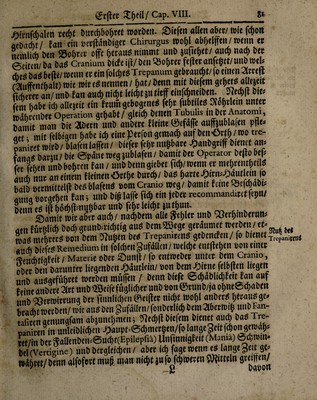 Erster Theil/ Cap. VIII. 81
Hirnschalen recht durchbohret worden. Diesen allen aber/ wie schon
gedacht/ kan ein verständiger Chirurgus wohl abhelffen/ wenn er
nemlich den Bohrer offt heraus nimmt und zusiehet/ auch nach der
Seiten/ da das Cranium dicke ist/ den Bohrer fester ansetzt/ und wel-
ches das beste/ wenn er ein solches Trepanum gebraucht/ so einen Arrest
(Auffenthalt) wie wir es nennen/ hat/ denn mit diesem gehets allezeit
sicherer an/ und kan auch nicht leicht zu tieff einschneiden. Nechst die-
sem habe ich allezeit ein krumgebogenes sehr subtiles Röhrlein unter
währender Operation gehabt/ gleich denen Tubulis in der Anatomi,
damit man die Adern und andere kleine Gefässe auffzublasen pfle-
get; mit selbigen habe ich eine Person gemach auf den Orth/ wo tre-
paniret wird/ blasen lassen/ dieser sehr nutzbare Handgriff dienet an-
fangs darzu/ die Späne weg zublasen/ damit der Operator desto bes-
ser sehen und bohren kan/ und denn giebet sich/ wenn er mehrentheils
auch nur an einem kleinen Orthe durch/ das harte Hirn-Häutlein so
bald vermittelst des blasens vom Cranio weg/ damit keine Beschädi-
gung vorgehen kan; und diß lasse sich ein jeder recommandiret seyn/
denn es ist höchstnutzbar und sehr leicht zu thun.
Damit wir aber auch/ nachdem alle Fehler und Verhinderun-
gen kürtzlich doch grundrichtig aus dem Wege geräumet worden/ et-
was mehrers von dem Nutzen des Trepanirens gedencken/ so dienet
auch dieses Remedium in solchen Zufällen/ welche entstehen von einer
Feuchtigkeit/ Materie oder Dunst/ so entweder unter dem Cranio,
oder den darunter liegenden Häutlein/ von dem Hirne selbsten liegen
und ausgeführet werden müssen/ denn diese Schädlichkeit kan auf
keine andere Art und Weise füglicher und von Grund/ ja ohne Schaden
und Verwirrung der sinnlichen Geister nicht wohl anders heraus ge-
bracht werden/ wie aus den Zufällen/ sonderlich dem Aberwitz und Fan-
tasiren genungsam abzunehmen; Nechst diesem dienet auch das Tre-
paniren in unleidlichen Haupt-Schmertzen/ so lange Zeit schon gewäh-
ret/ in der Fallenden-Sucht (Epilepsiâ) Unsinnigkeit (Mania) Schwin-
del (Vertigine) und dergleichen/ aber ich sage wenn es lange Zeit ge-
währet/ denn alsofort muß man nicht zu so schweren Mitteln greiffen/
L davon
Nutz des
Trepanirens